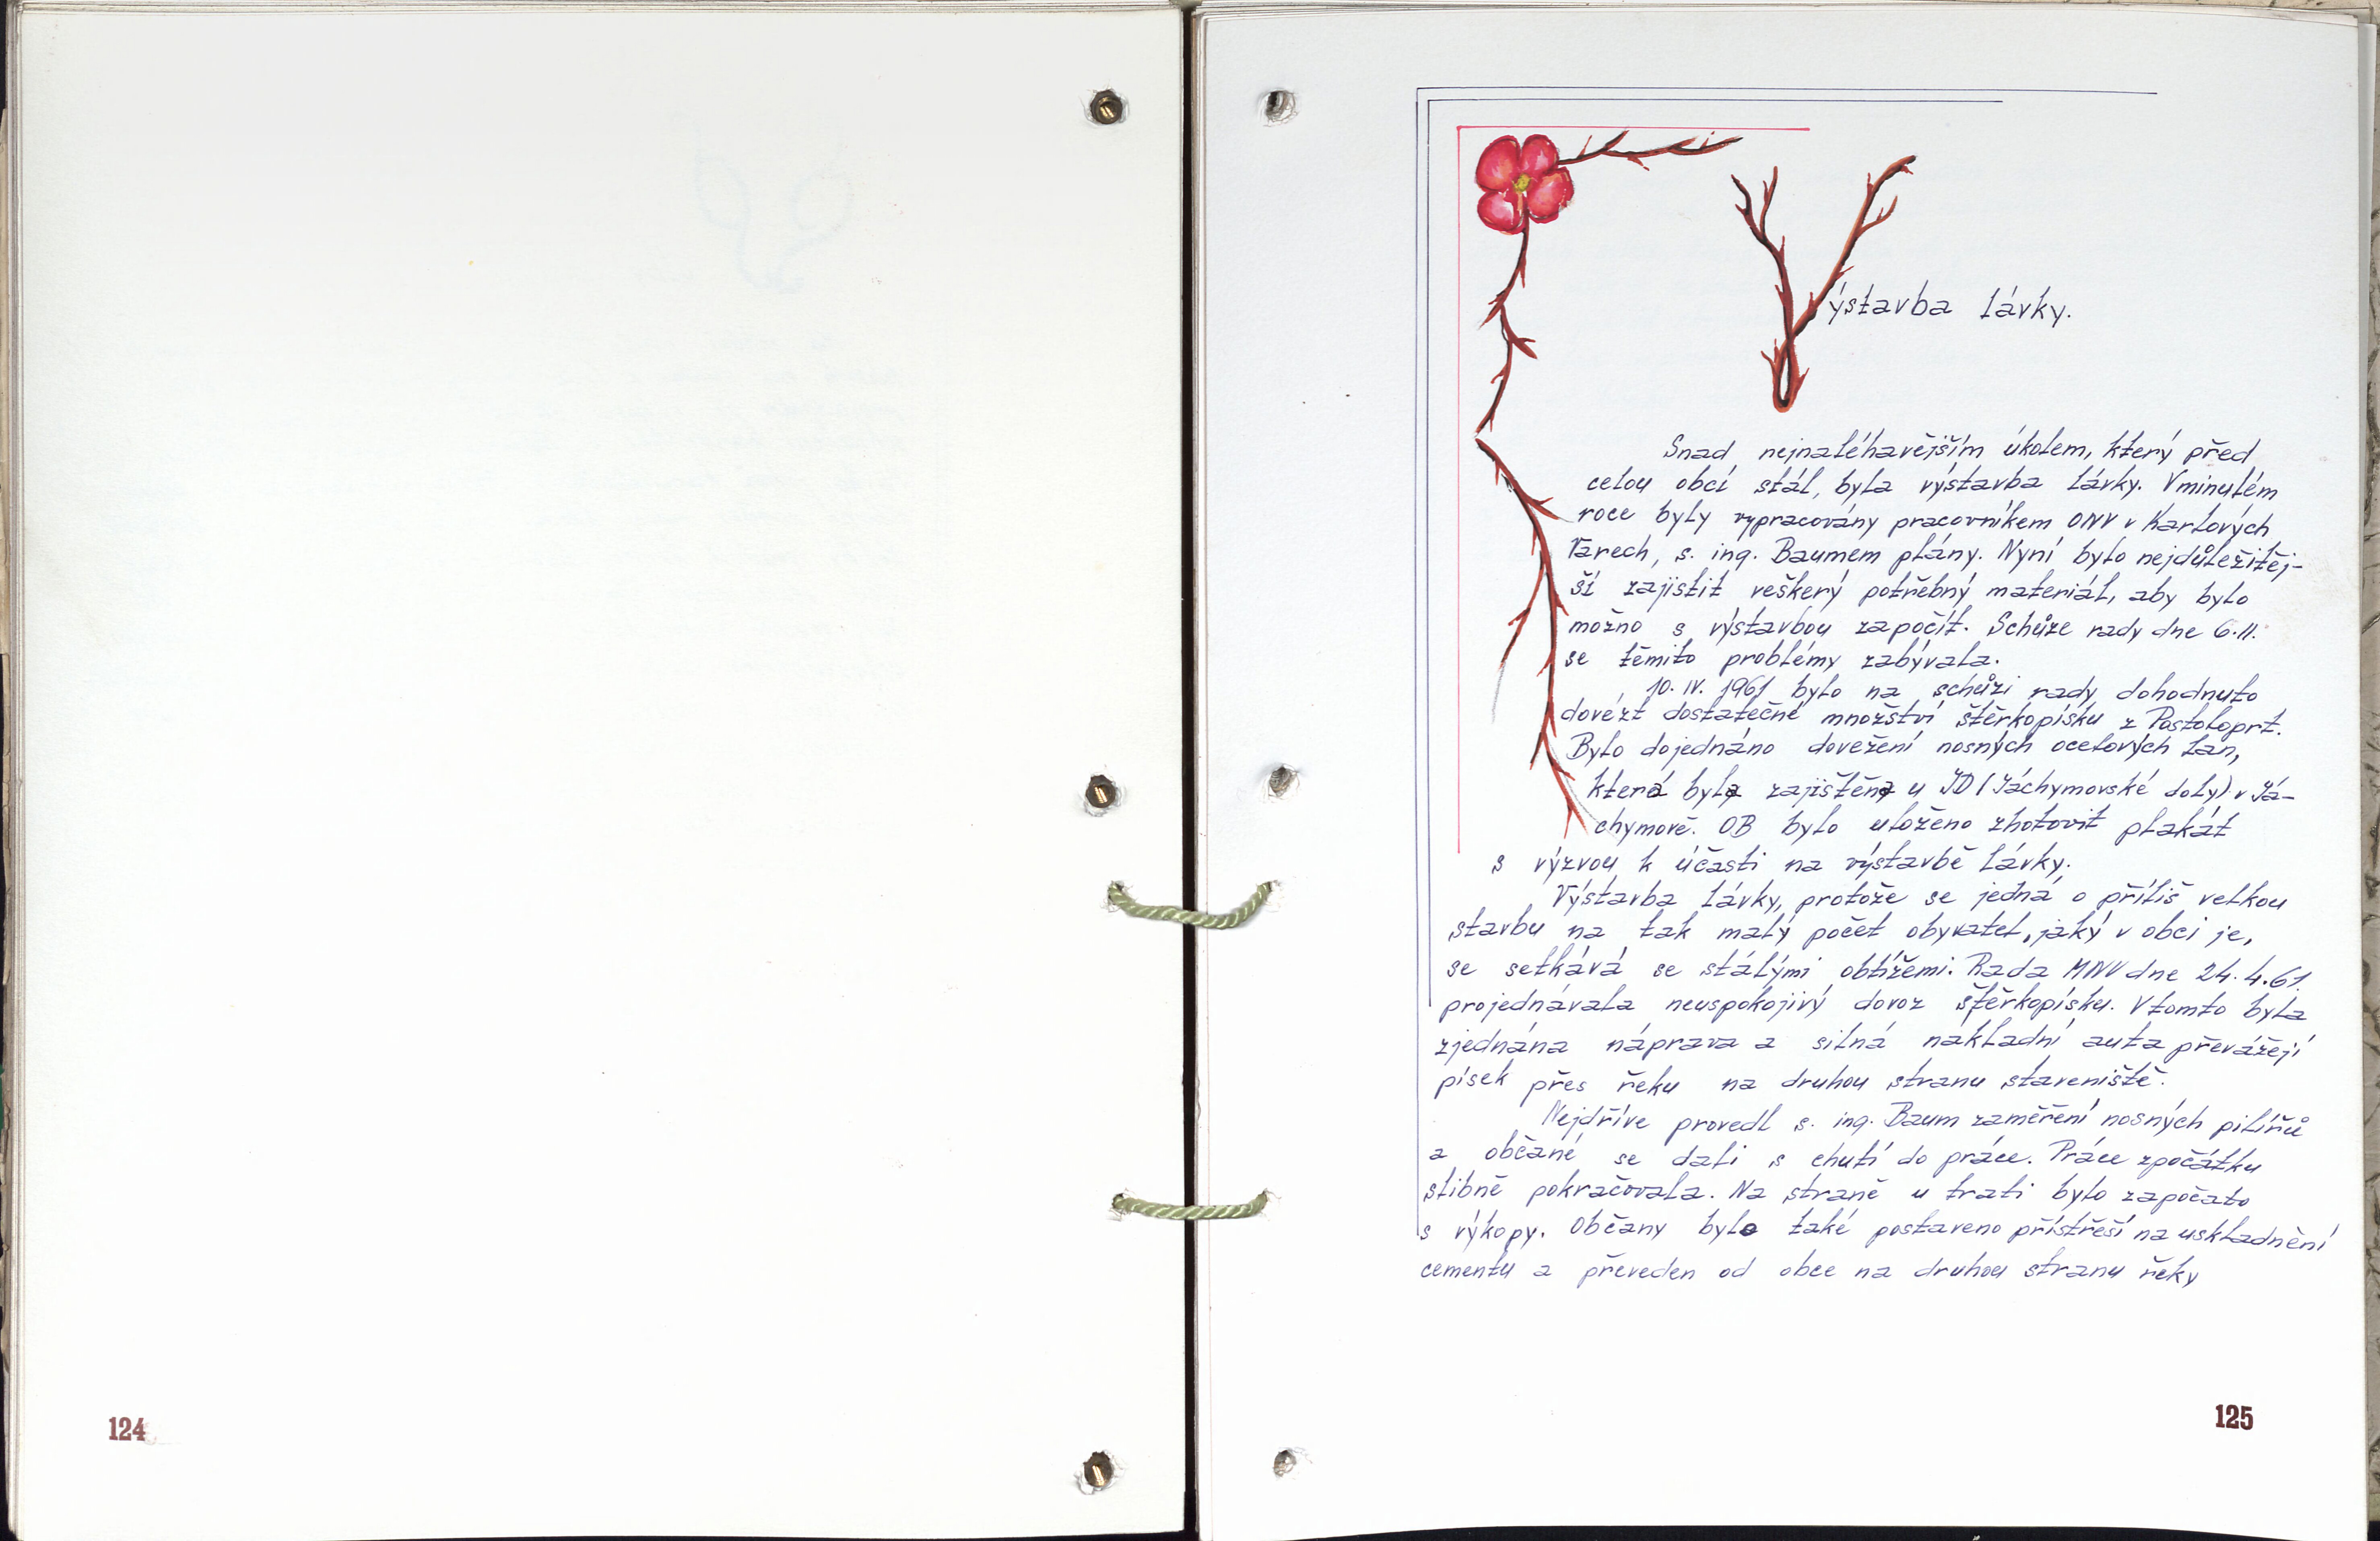 Výstavba lávky.
Snad nejnaléhavějším úkolem, který před
celou obcí stál, byla výstavba lávky. V minulém
roce byly vypracovány pracovníkem ONV v Karlových
Varech, s. ing. Baumem plány. Nyní bylo nejdůležitěj-
ší zajistit veškerý potřebný materiál, aby bylo
možno s výstavbou započít. Schůze rady dne 6.II.
se těmito problémy zabývala.
10. IV. 1961 bylo na schůzi rady dohodnuto
dovézt dostatečné množství štěrkopísku z Postoloprt.
Bylo dojednáno dovežení nosných ocelových lan,
která byla zajištěna u JD (Jáchymovské doly) v Já-
chymově. OB bylo uloženo zhotovit plakát
s výzvou k účasti na výstavbě lávky.
Výstavba lávky, protože se jedná o příliš velkou
stavbu na tak malý počet obyvatel, jaký v obci je,
se setkává se stálými obtížemi. Rada MNV dne 24.4.61.
projednávala neuspokojivý dovoz štěrkopísku. V tomto byla
zjednána náprava a silná nákladní auta převážejí
písek přes řeku na druhou stranu staveniště.
Nejdříve provedl s. ing. Baum zaměření nosných pilířů
a občané se dali s chutí do práce. Práce zpočátku
slibně pokračovala. Na straně u trati bylo započato
s výkopy. Občany bylo také postaveno přístřeší na uskladnění
cementu a převeden od obce na druhou stranu řeky
124
125